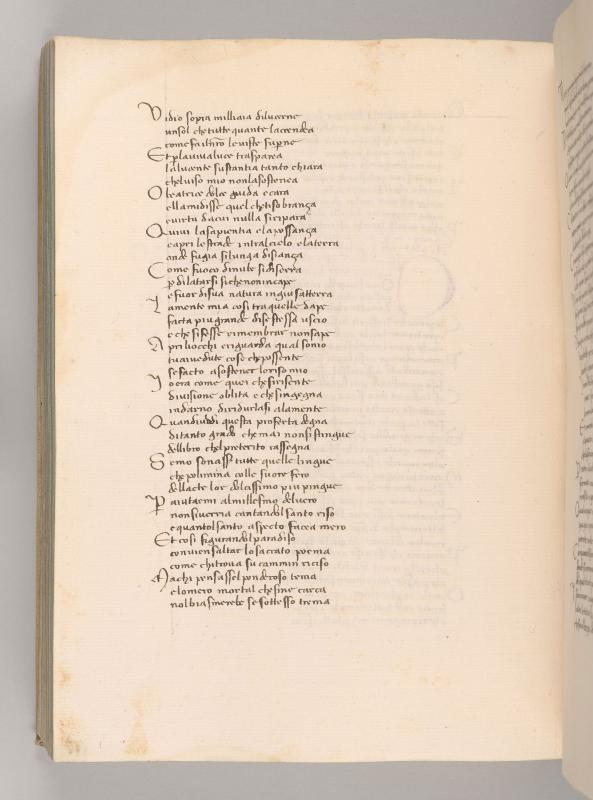 Vidio sopra milliaia dilucerne
unsol chetutte quante laccendea
come fa ilnr̃o le viste superne
Et p̱ lavivaluce trasparea
laluCente sustantia tanto chiara
chelviso mio nonlasostenea
O beatrice dolce guida ecara
ellamidisse quel chetisobrança
evirtu dacui nulla siripara
Quivi lasapientia elapossança
caprì lestrade intralcielo elaterra
onde fugia silunga disiança
Come fuoco dinube sidiserra
p̱ dilatarsi sichenonincape
e fuor disua natura ingiusatterra
La mente mia cosi traquelle dape
facta piugrande disestessa uscio
e che sifesse rimembrar nonsape
Apriliocchi eriguarda qual sonio
tuaivedute cose chepossente
sefacto asostener loriso mio
Io era come quei chesirisente
divisione oblita e chesingegna
indarno diridurlasi alamente
Quandiudi questa proferta degna
ditanto grado chemai nonsistingue
dellibro chelpreterito rassegna
Semo sonasser tutte quelle lingue
chepolimina colle suore fero
dellacte lor dolcissimo piu pingue
Paiutarmi almillesmo delvero
nonsiverria cantandolsanto riso
equantolsanto aspecto facea mero
Et cosi figurandolparadiso
convienssaltar losacrato poema
come chitrova su cammin riciso
Machi pensassel ponderoso tema
elomero mortal chesine carca
nolbiasmerebe se sottesso trema